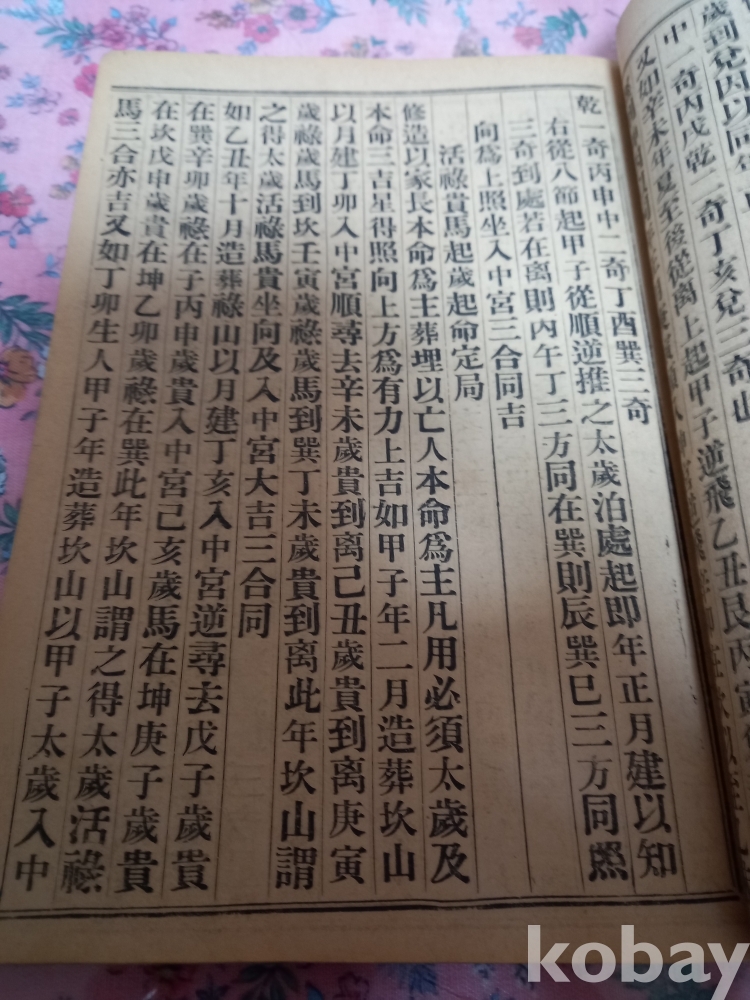 歲到兌因以同
中一奇丙戌乾二奇丁亥兌三奇
又如辛未年夏至後從离上起甲子逆飛乙丑艮丙寅
乾一奇丙申中二奇丁酉巽三奇
右從八節起甲子從順逆推之太歲泊處起即年正月建以知
三奇到處若在离則丙午丁三方同在巽則辰巽巳三方同照
向爲上照坐入中宮三合同吉
活祿貴馬起歲起命定局
修造以家長本命爲主葬埋以亡人本命爲主凡用必須太歲及
本命三吉星得照向上方爲有力上吉如甲子年二月造葬坎山
以月建丁卯入中宮順尋去辛未歲貴到离己丑歲貴到离庚寅
歲祿歲馬到坎壬寅歲祿歲馬到巽丁未歲貴到离此年坎山謂
之得太歲活祿馬貴坐向及入中宮大吉三合同
如乙丑年十月造葬祿山以月建丁亥入中宮逆尋去戊子歲貴
在巽辛卯歲祿在子丙申歲貴入中宮己亥歲馬在坤庚子歲貴
在坎戊申歲貴在坤乙卯歲祿在巽此年坎山謂之得太歲活祿
馬三合亦吉又如丁卯生人甲子年造葬坎山以甲子太歲入中
kobay